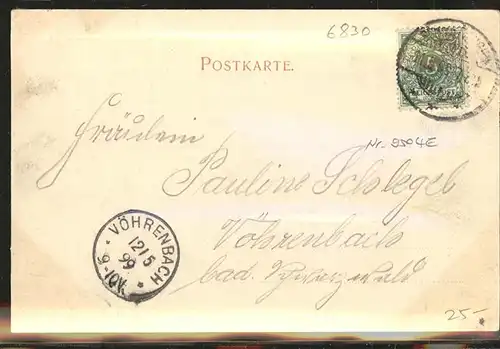 6830
POSTKARTE.
5
Nr. 9504E
Fräulein
Pauline Schlegel
Vöhrenbach
bad. Schwarzwald
VÖHRENBACH
12/5
99
9-10V.
25-